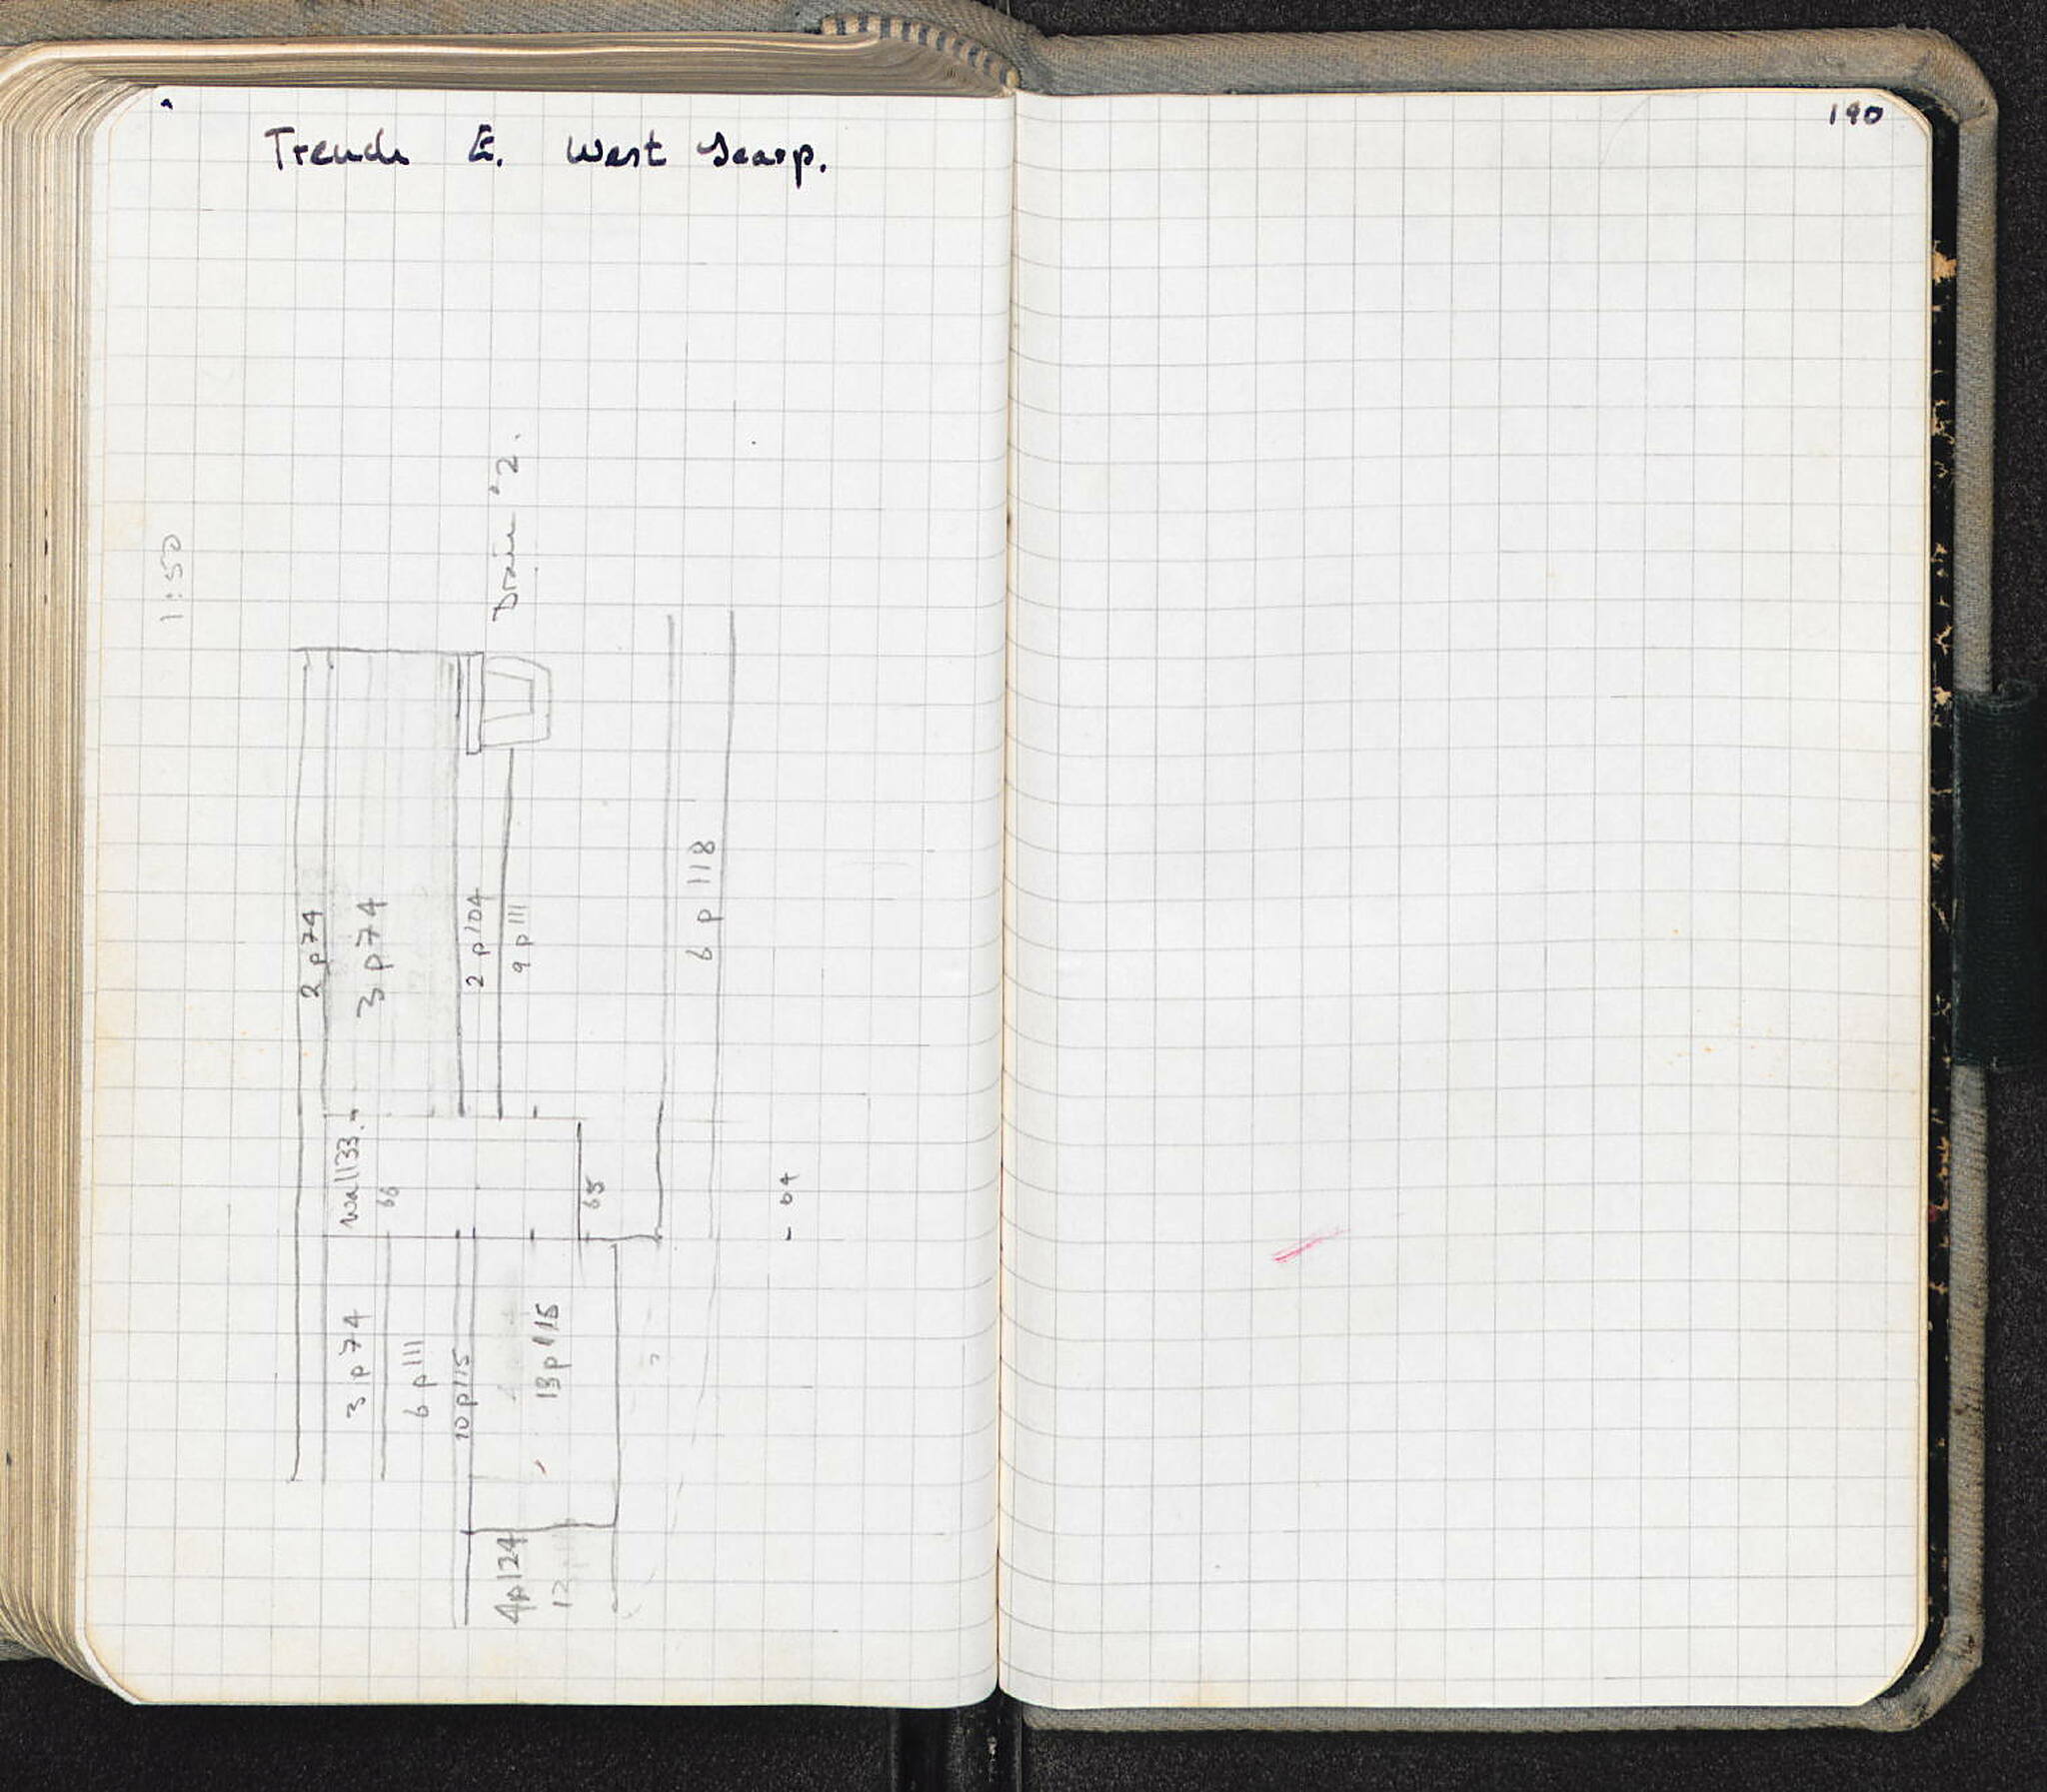 190
Trench E. West Scarp.
1:50
Drain 2.
2 p 74
3 p 74
2 p 104
9 p 111
6 p 118
wall 33.
66
65
3 p 74
6 p 111
10 p 115
13 p 115
?
4 p 124
12